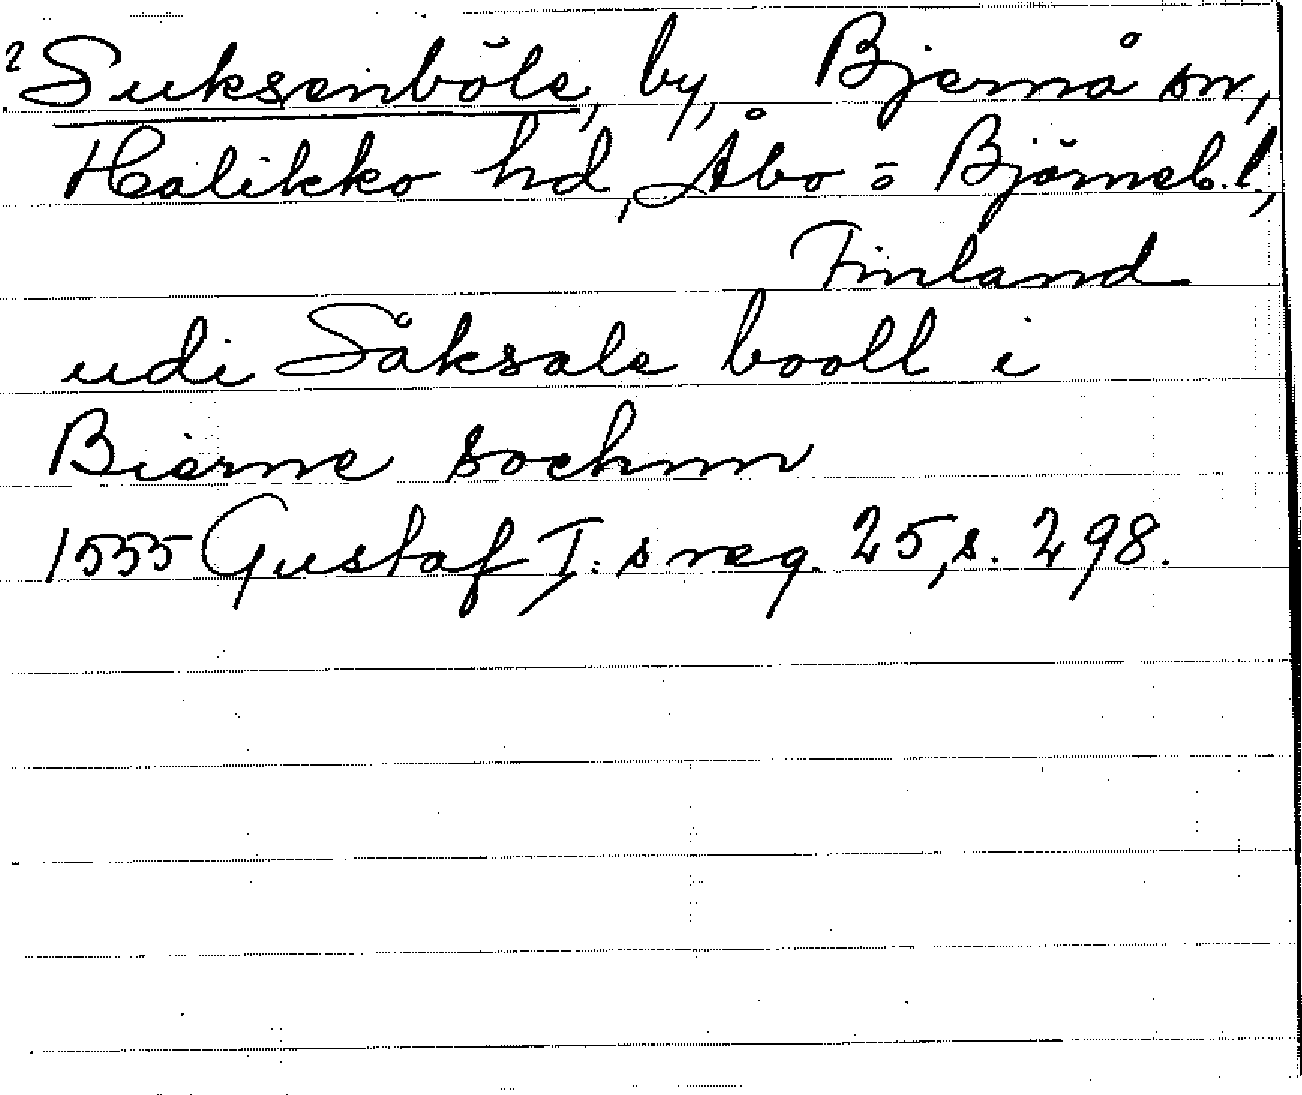 ? Suksenböle, by, Bjernå sn,
Halikko hd, Åbo = Björneb. l.,
Finland
udi Såksale booll i
Bierne sochnn
1555 Gustaf I:s reg. 25, s. 298.